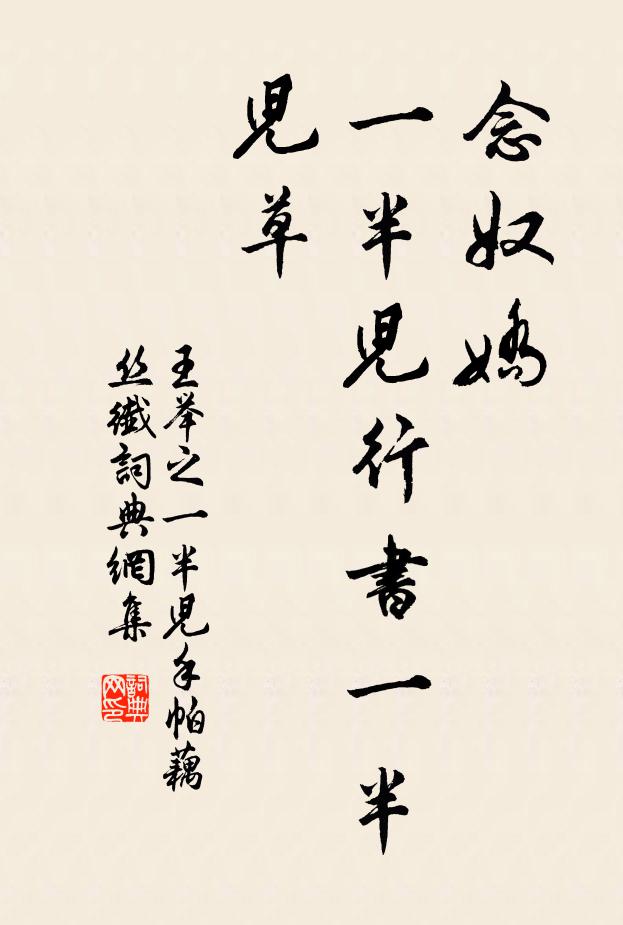 念奴嬌
一半兒行書一半
兒草
王举之一半兒手帕藕
丝織詞典網集
詞典网印